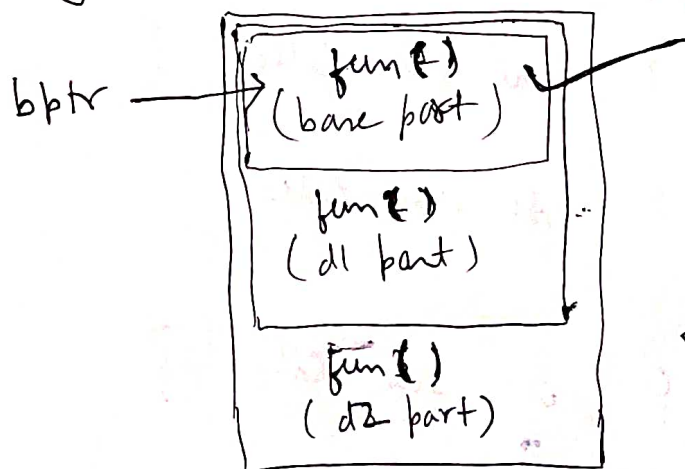 fun()
bptr
(base part)
fun()
(d1 part)
fun()
(d2 part)